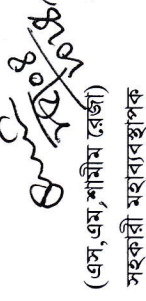 (এস,এম,শামীম রেজা)
সহকারী মহাব্যবস্থাপক